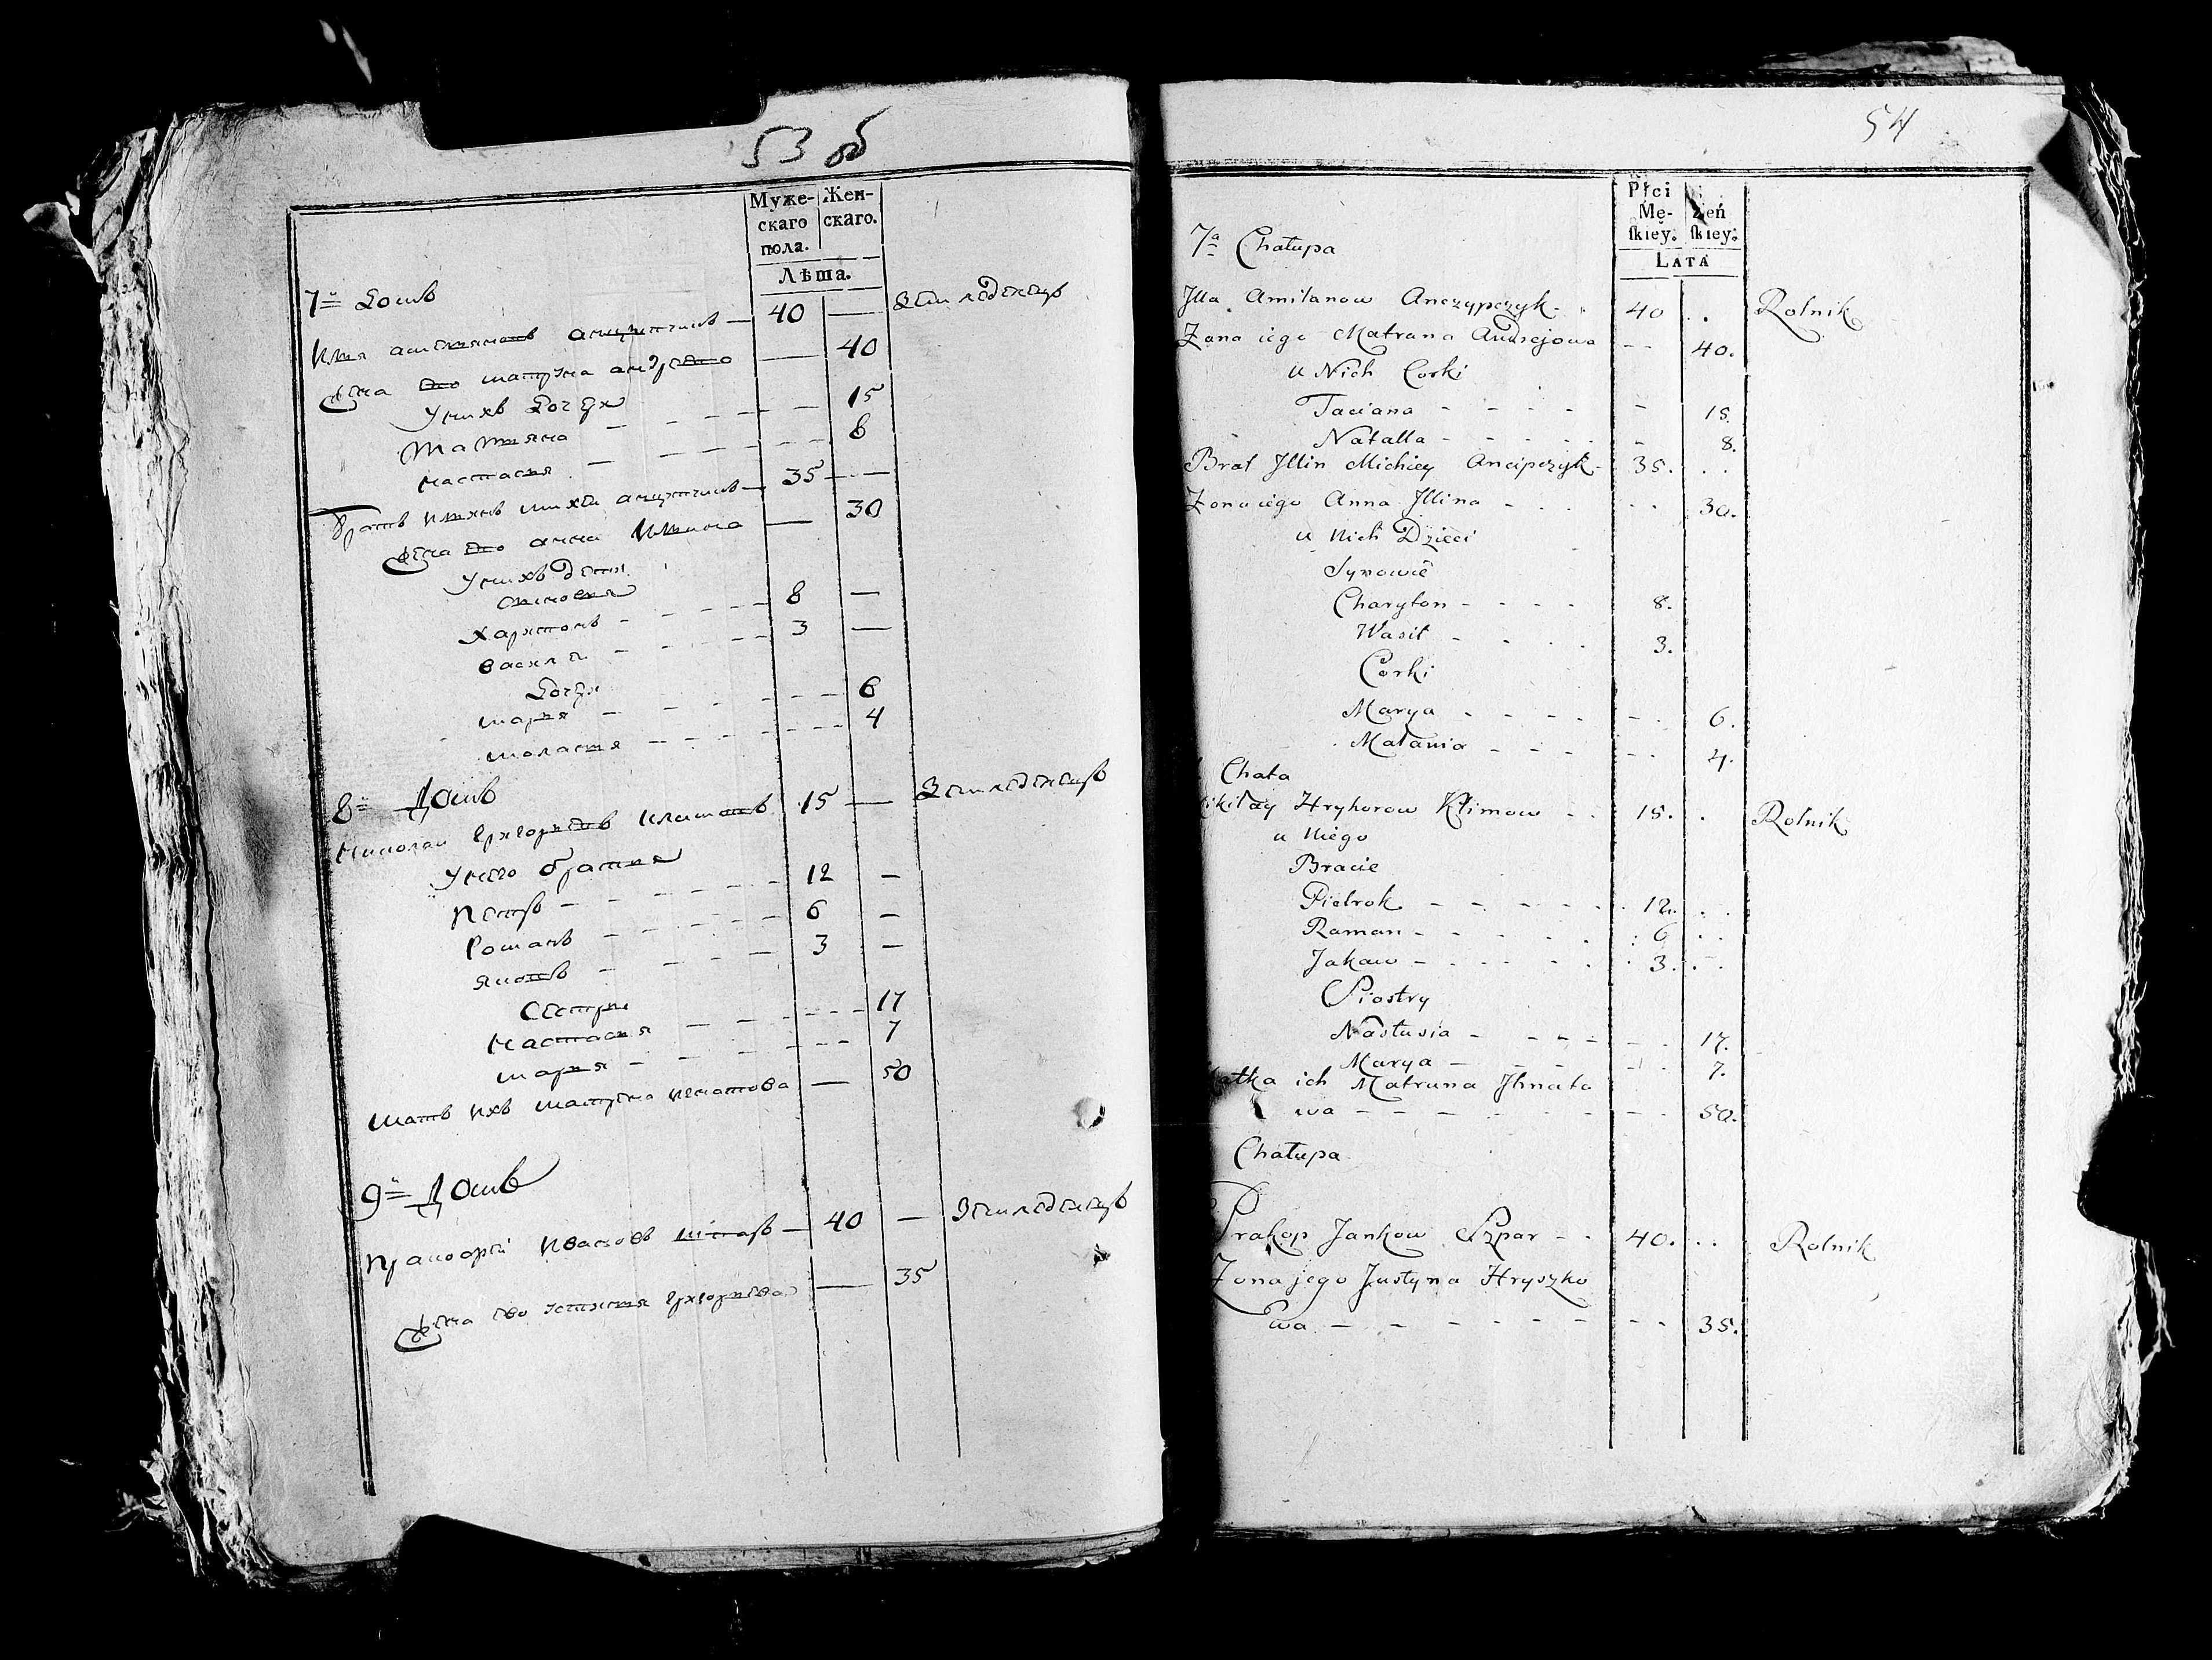 53 об
Муже- Жен-
скаго скаго.
пола.
Лѣта.
7й Домъ
Илья Амельяновъ Анципчикъ — 40 — Земледелецъ
Жена его Матруна Андреева — 40
У нихъ Дочери
Татьяна — 15
Настасия — 8
Братъ Ильинъ Михей Анципчикъ — 35 —
Жена его Анна Ильина — 30
У нихъ дети
Сыновья
Харитонъ — 8 —
Василей — 3 —
Дочери
Марья — 6
4
8й Домъ
Николай Григорьевъ Климовъ 15 — Земледелецъ
У него братья
Петръ — 12 —
Романъ — 6 —
Яковъ — 3 —
Сестры
Настасья — 17
Марья — 7
Мать ихъ Матруна Игнатова — 50
9й Домъ
Пракофей Ивановъ Шпаръ — 40 — Земледелецъ
Жена его Устинья Григорьева — 35
54
Płci
Mę- Żeń
skiey. skiey.
LATA
7a Chałupa
Jlla Amilanow Anczypczyk 40 . Rolnik
Zona iego Matruna Andrejowa -- 40.
u Nich Corki
Taciana - - - - - 15.
Natalla - - - - - 8.
Brat Jllin Michiey Ancipczyk - 35. . .
Zona iego Anna Jllina - . . . . 30.
u Nich Dzieci
Synowie
Charyton - - - - 8.
Wasil - - . . 3.
Corki
Marya - - - - - . 6.
Malania - - - - - 4.
Chata
ikiłay Hryhorow Klimow . . 15. . Rolnik
u Niego
Bracie
Pietrok - - - - - 12. . .
Raman - - - - . : 6 . .
Jakaw - . . . . . 3. . .
Siostry
Nastusia - - - - - . 17.
Marya - - - - . 7.
atka ich Matruna Jhnato
wa - - - - - - - . 50.
Chałupa
Prakop Jankow Szpar - . 40. . . Rolnik
Zona jego Justyna Hryszko
wa - - - - - - - - 35.